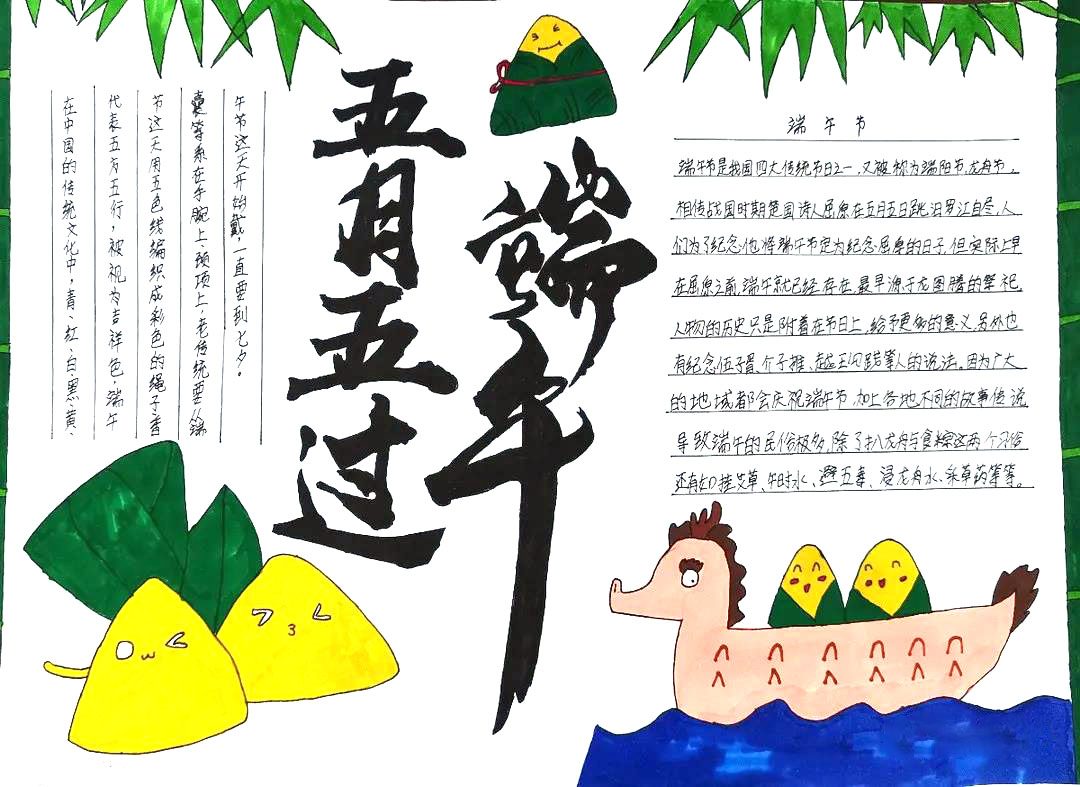 在中国的传统文化中,青、红、白、黑、黄、
代表五方五行,被视为吉祥色,端午
节这天用五色线编织成彩色的绳子香
囊等系在手腕上、颈项上,老传统要从端
午节这天开始戴,一直要到七夕。
五月五过
端午
端午节
端午节是我国四大传统节日之一,又被称为端阳节、龙舟节。
相传战国时期楚国诗人屈原在五月五日跳汨罗江自尽,人
们为了纪念他将端午节定为纪念屈原的日子,但实际上早
在屈原之前,端午就已经存在最早源于龙图腾的祭祀。
人物的历史只是附着在节日上,给予更多的意义,另外也
有纪念伍子胥、介子推、越王勾践等人的说法。因为广大
的地域都会庆祝端午节,加上各地不同的故事传说
导致端午的民俗极多,除了扒龙舟与食粽这两个习俗
还有如挂艾草、午时水、避五毒、浸龙舟水、采草药等等。